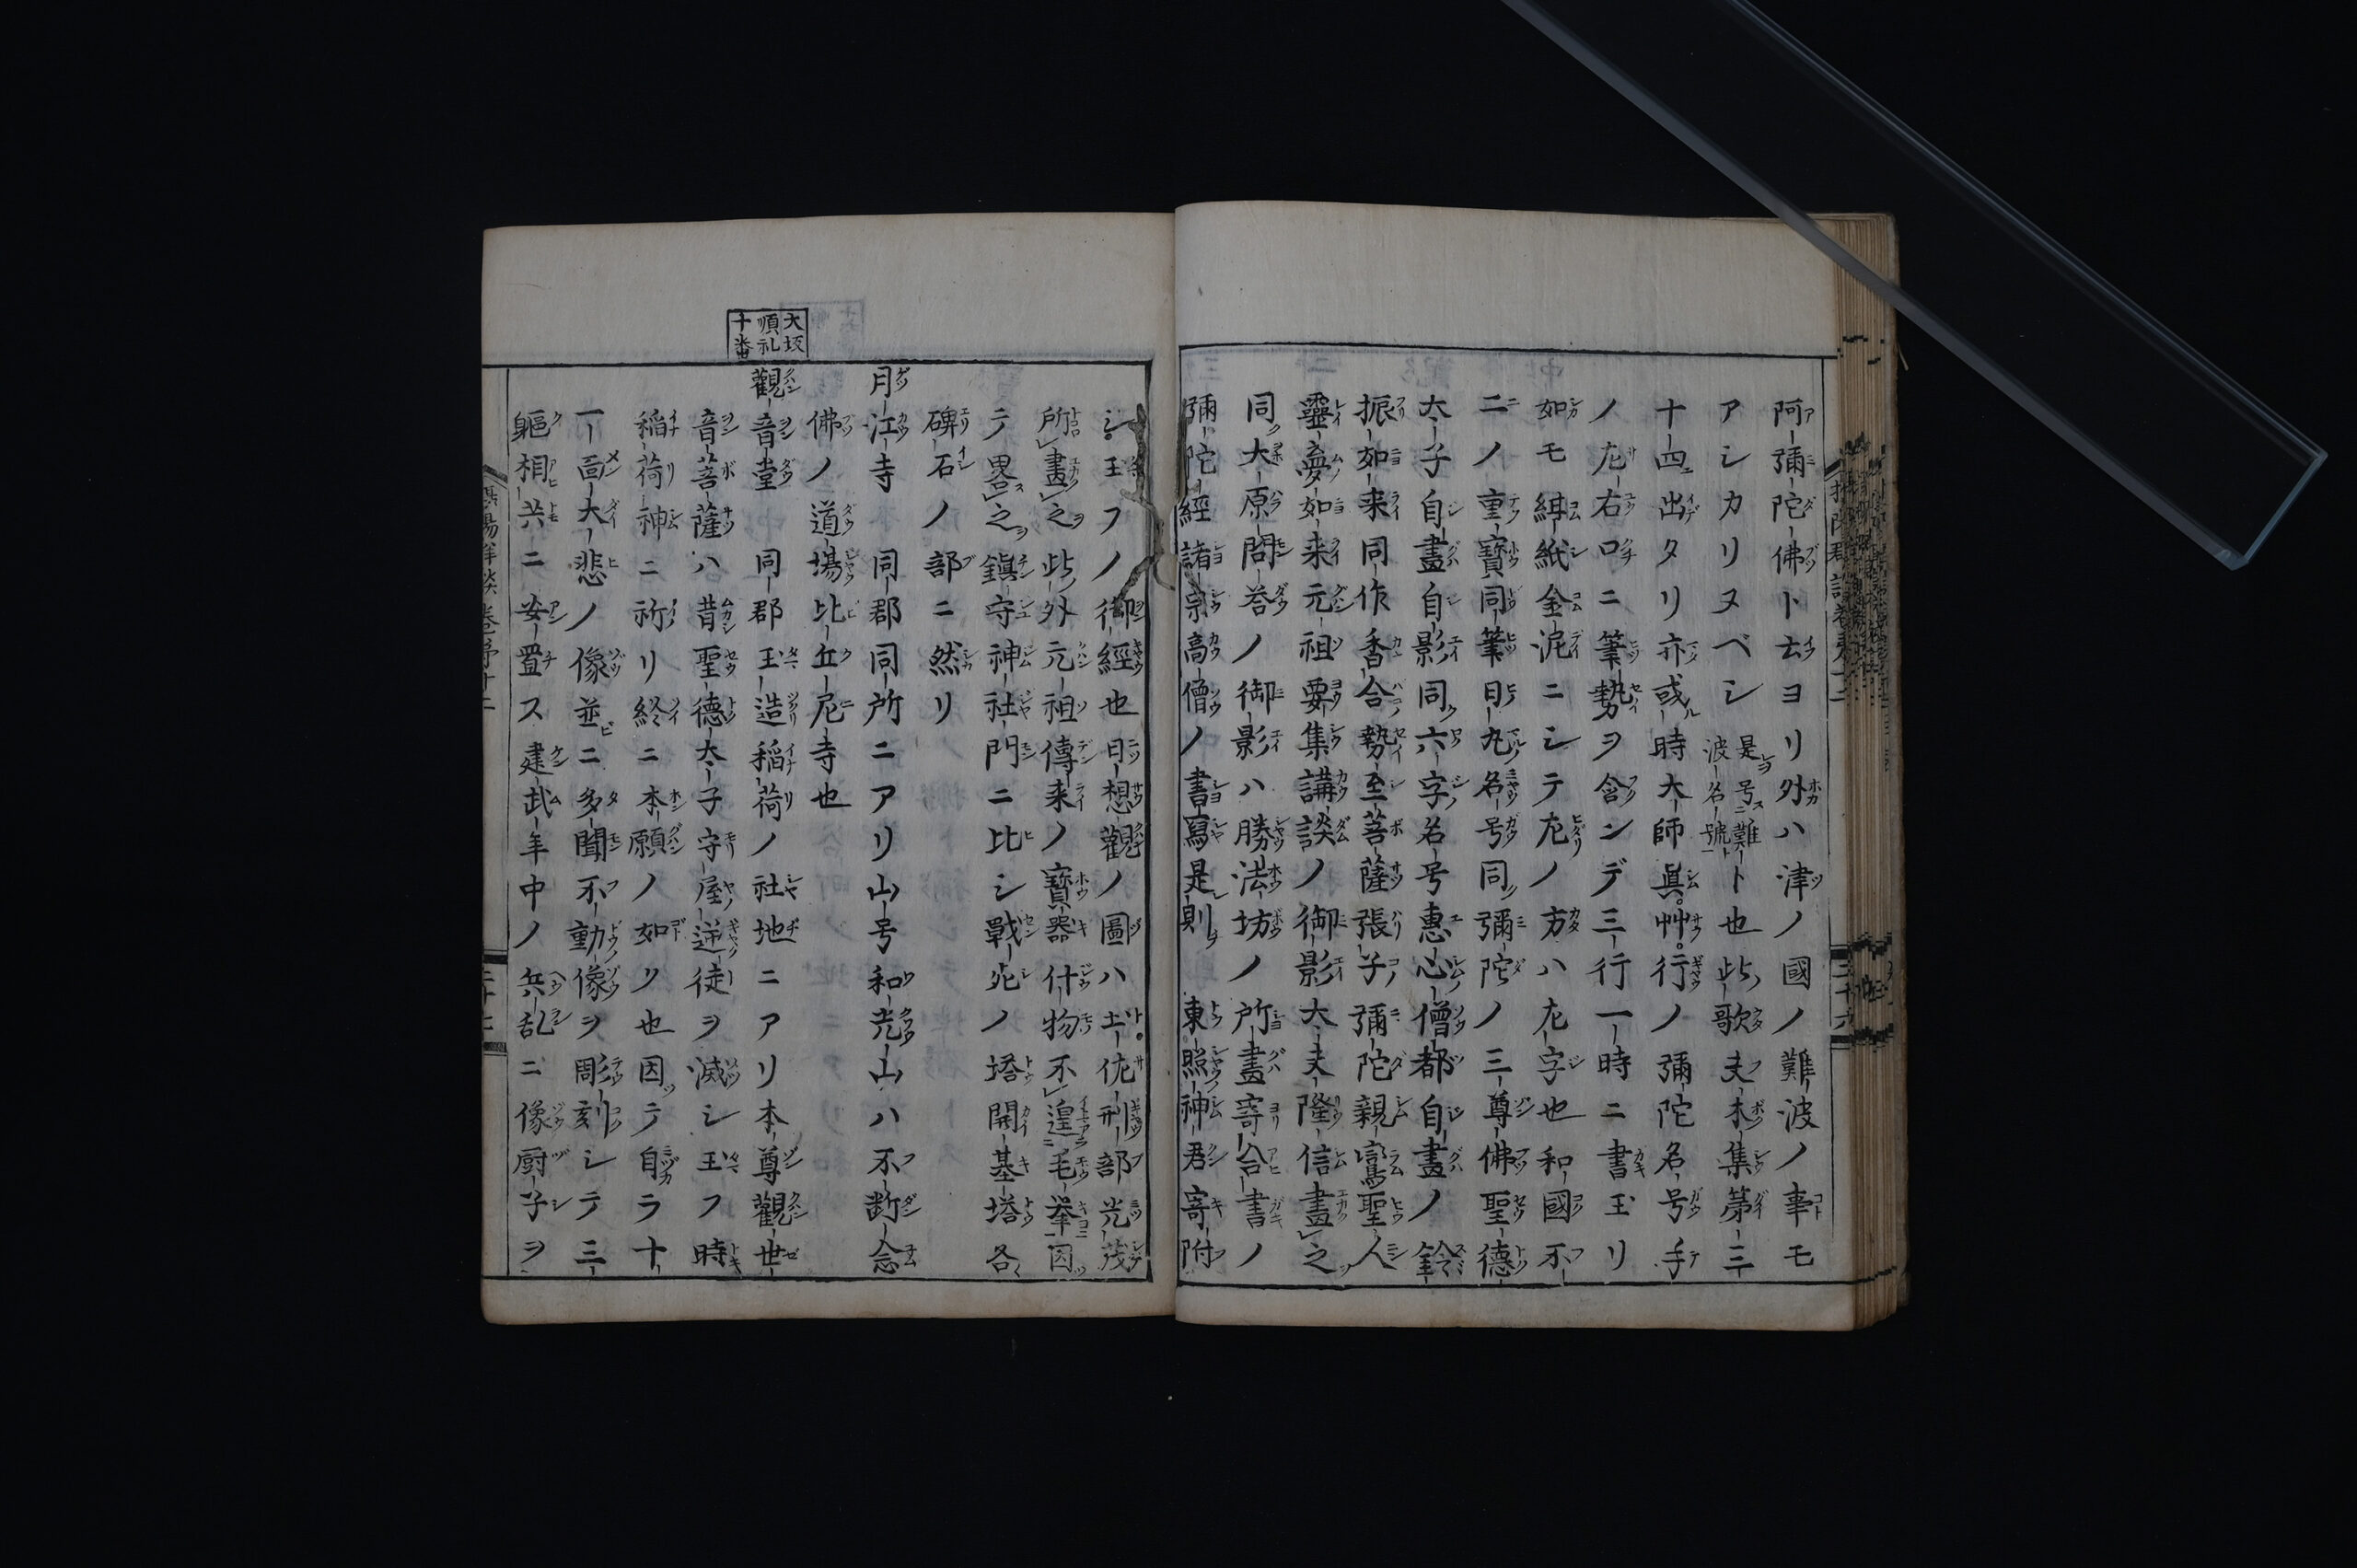 阿彌陀佛ト云ヨリ外ハ津ノ國ノ難波ノ事モ
アシカリヌベシ是号難波名號ト也此歌夫木集第三
十四出タリ亦或時大師眞艸行ノ彌陀名号手
ノ左右口ニ筆勢ヲ含ンデ三行一時ニ書玉リ
如モ紺紙金泥ニシテ左ノ方ハ左字也和國不
二ノ重寶同筆日丸名号同彌陀ノ三尊佛聖德
太子自畫自影同六字名号惠心僧都自畫ノ鈴
振如来同作香合勢至菩薩張子彌陀親鸞聖人
靈夢如来元祖要集講談ノ御影大夫隆信畫之
同大原問答ノ御影ハ勝法坊ノ所畫寄合書ノ
彌陀經諸宗高僧ノ書寫是則東照神君寄附
シ玉フノ御經也日想觀ノ圖ハ土佐刑部光茂
所畫之此外元祖傳来ノ寶器什物不遑毛挙因
テ畧之鎮守神社門ニ比シ戰死ノ塔開基塔各
碑石ノ部ニ然リ
月江寺 同郡同所ニアリ山号和光山ハ不断念
佛ノ道場比丘尼寺也
大坂
順礼
十番
觀音堂 同郡玉造稲荷ノ社地ニアリ本尊觀世
音菩薩ハ昔聖德太子守屋逆徒ヲ滅シ玉フ時
稲荷神ニ祈リ終ニ本願ノ如リ也因テ自ラ十
一靣大悲ノ像並ニ多聞不動像ヲ彫刻シテ三
軀相共ニ安置ス建武年中ノ兵乱ニ像厨子ヲ